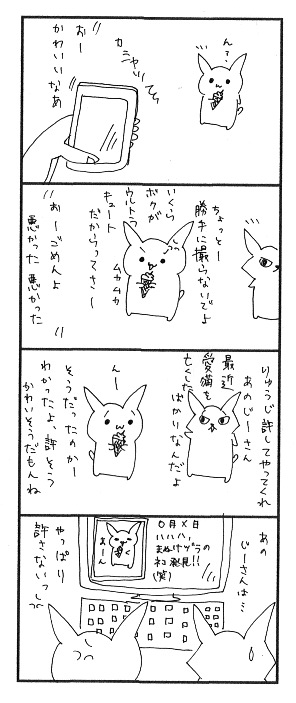 ん?
カシャッ
おー
かわいいなあ
ちょっとー
勝手に撮らないでよ
いくら
ボクが
ウルトラ
キュート
だからってさ〜
ムカムカ
おーごめんよ
悪かった悪かった
りゅうじ許してやってくれ
あのじーさん
最近
愛猫を
亡くした
ばかりなんだよ
んー
そうだったのかー
わかったよ、許そう
かわいそうだもんね
あの
じーさんは…
〇月×日
ハハハ、
まぬけヅラの
ネコ発見!!
(笑)
あーん
やっぱり
許さないっ